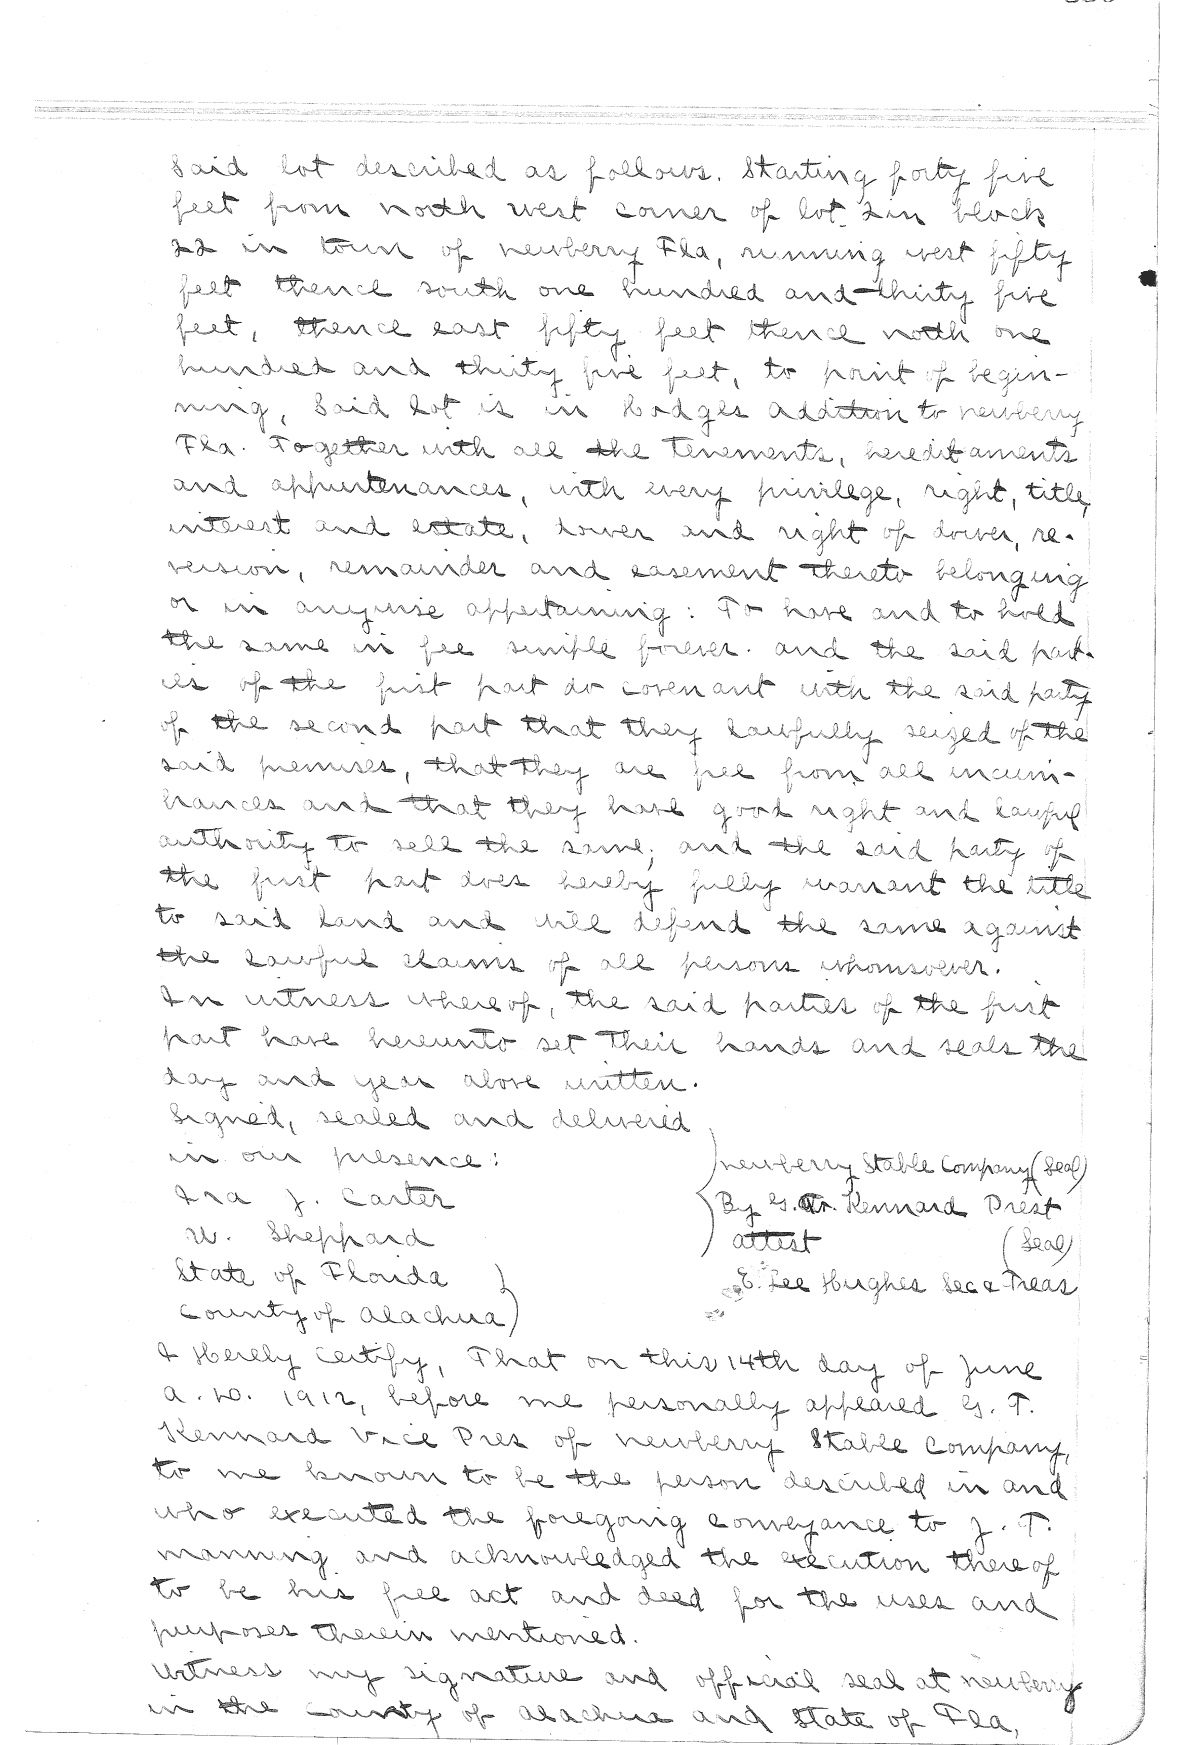 Said lot described as follows. Starting forty five
feet from north west corner of lot 2 in block
22 in town of newberry Fla, running west fifty
feet thence south one hundred and thirty five
feet, thence east fifty feet thence north one
hundred and thirty five feet, to point of begin-
ning, Said lot is in Hodges addition to newberry
Fla. Together with all the Tenements, hereditaments
and appurtenances, with every privilege, right, title,
interest and estate, dower and right of dower, re-
version, remainder and easement thereto belonging
or in anywise appertaining: To have and to hold
the same in fee simple forever. and the said part-
ies of the first part do covenant with the said party
of the second part that they lawfully seized of the
said premises, that they are free from all incum-
brances and that they have good right and lawful
authority to sell the same; and the said party of
the first part does hereby fully warrant the title
to said land and will defend the same against
the lawful claims of all persons whomsoever.
In witness whereof, the said parties of the first
part have hereunto set their hands and seals the
day and year above written.
Signed, sealed and delivered
in our presence:
newberry Stable Company (Seal)
Ira J. Carter
By G. T. Kennard Prest
W. Sheppard
attest (Seal)
State of Florida
E. Lee Hughes Sec & Treas
County of Alachua
I Hereby Certify, That on this 14th day of June
A.D. 1912, before me personally appeared G. T.
Kennard Vice Pres of newberry Stable Company,
to me known to be the person described in and
who executed the foregoing conveyance to J. T.
manning and acknowledged the execution thereof
to be his free act and deed for the uses and
purposes therein mentioned.
Witness my signature and official seal at newberry
in the County of Alachua and State of Fla,